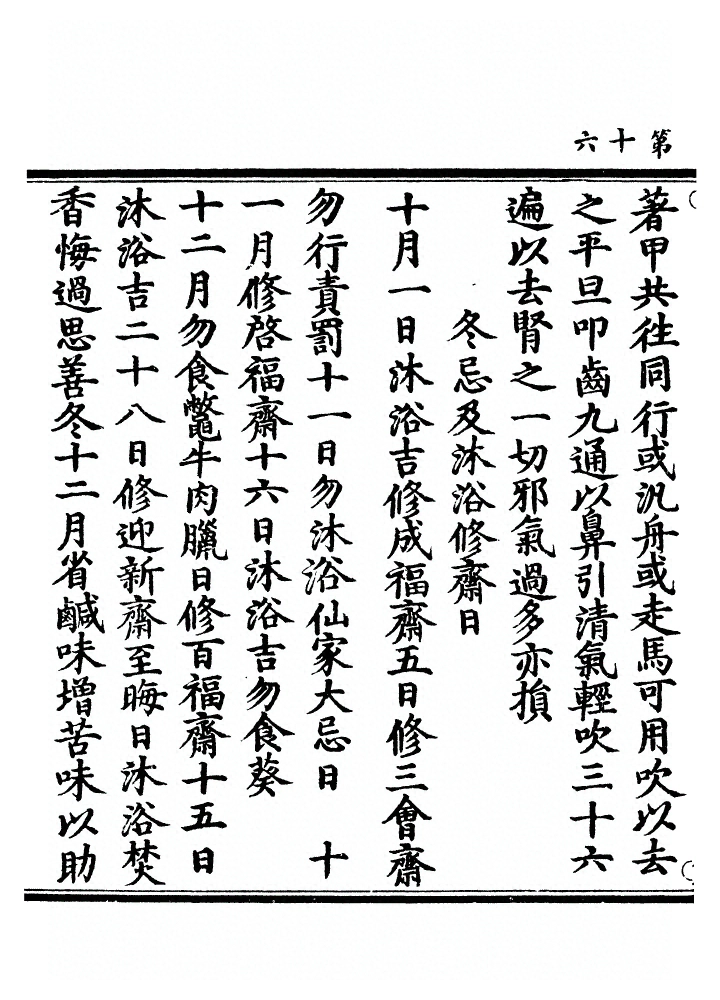 第十六
著甲共徃同行或汎舟或走馬可用吹以去
之平旦叩齒九通以鼻引清氣輕吹三十六
遍以去腎之一切邪氣過多亦損
冬忌及沐浴修齋日
十月一日沐浴吉修成福齋五日修三會齋
勿行責罰十一日勿沐浴仙家大忌日　十
一月修啓福齋十六日沐浴吉勿食葵
十二月勿食鼈牛肉臘日修百福齋十五日
沐浴吉二十八日修迎新齋至晦日沐浴焚
香悔過思善冬十二月省鹹味增苦味以助